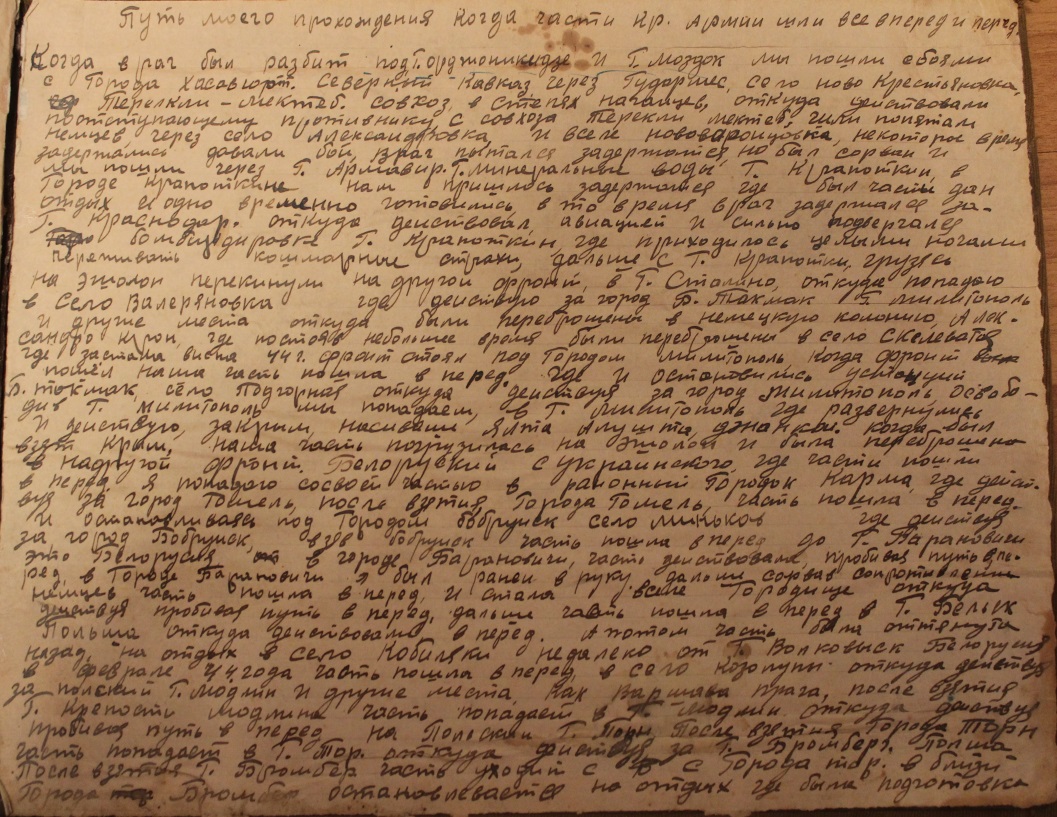 Путь моего прохождения когда части Кр. Армии шли все вперед и перед.
Когда враг был разбит под Г. Орджоникидзе и Г. Моздок мы пошли с боями
с Города Хасавюрт. Северный Кавказ, через Гудермес, село ново Крестьяновка,
Терекли-мектеб. совхоз, в степях нагайцев, откуда действовали
поотступающему противнику, с совхоза терекли мектеб, гили попятам
немцев, через село Александровка, и вселе нововаронцовка, некоторое время
задержались давали бой, враг пытался задержатся, но был сорван и
мы пошли через Г. Армавир. Г. минеральные воды, Г. Крапоткин, в
Городе Крапоткине нам пришлось задержатся где был части дан
отдых и одно временно готовились, в это время враг задержался за-
Г. Краснодар. откуда действовал авиацией и сильно подвергался
бомбардировка Г. Крапоткин, где приходилось целыми ночами
переживать кошмарные страхи, дальше с Г. Крапотки, грузясь
на эшолон перекинули на другой фронт, в Г. Сталино, откуда попадаю
в село Валеряновка где действую за город Б. Такмак Г. милитополь
и другие места откуда были переброшены в немецкую колонию, Алек-
сандро Крон, где постояв небольшое время были переброшены в село Скелеватое
где застала висна 44 г. фронт стоял под Городом милитополь, когда фронт
пошёл наша часть пошла в перед. где и остановились устанций
Б. токмак, село Подгорная откуда действуя за город милитополь, освобо-
див Г. милитополь мы попадаем, в Г. милитополь где развернулись
и действую, закрим, насиваш ялта Алушта, джанкой. когда был
взят Крым, наша часть погрузилась на эшолон и была переброшена
в надругой фронт. Белоруский с украинского, где части пошли
в перед. я попадаю сосвоей частью в районный Городок Карма, где дейст-
вуя за город Гомель, после взятия, Города Гомель, часть пошла в перед.
и останавливаясь под Городом бобруйск село миньков где действуя
за город Бобруйск, взяв бобруйск часть пошла в перед до Г. Барановичи
это Белоруссия в городе Барановичи, часть действовала, пробивая путь впе-
ред, в Городе Барановичи я был ранен в руку, дальши сорвав сопротивление
немцев часть пошла в перед, и стала вселе Городище откуда
действуя пробивая путь в перед, дальши часть пошла в перед в Г. Бельск
Польша откуда действовали в перед. А потом часть была оттянута
назад, на отдых в село Кобиляки недалеко от Г. Волковыск Белорусия
в феврале 44 года часть пошла в перед, в село козолуны откуда действуя
за польский Г. модлин и другие места, как Варшава прага, после взятия
Г. Крепости модлина часть попадает в Г. модлин откуда действуя
пробивая путь в перед на Польский Г. Торн после взятия города Торн
часть попадает в Г. Тор. откуда действуя за Г. Бромберг, Полша
После взятия Г. Бромбер часть уходит с Города тор. в близи
Города Бромбер останавлевается на отдых где была подготовка